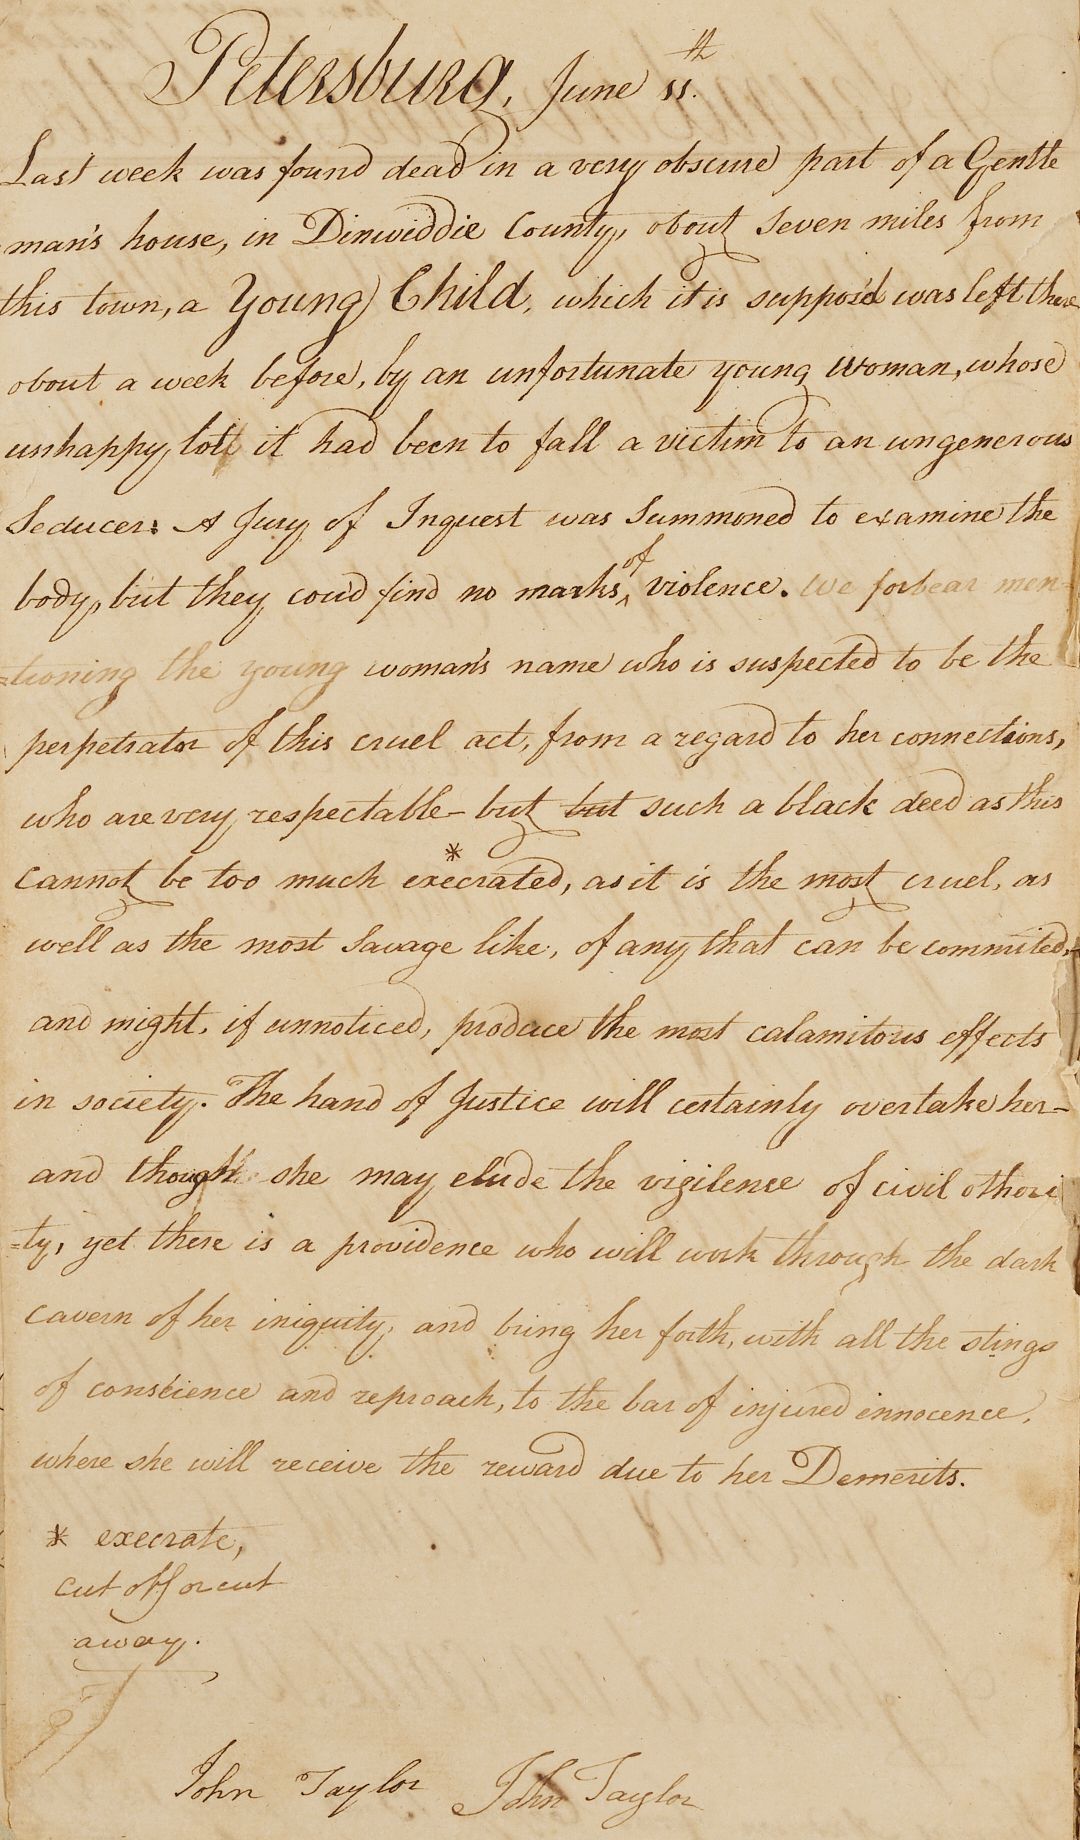 Petersburg, June 11.th
Last week was found dead in a very obscure part of a Gentle
man's house, in Dinwiddie County, about Seven miles from
this town, a Young Child, which it is suppos'd was left there
about a week before, by an unfortunate young Woman, whose
unhappy lott it had been to fall a victim to an ungenerous
Seducer. A Jury of Inquest was Summoned to examine the
body, but they cou'd find no marks ^of violence. We forbear men-
=tioning the young woman's name who is suspected to be the
perpetrator of this cruel act, from a regard to her connections,
who are very respectable - but but such a black deed as this
cannot be too much execrated,* as it is the most cruel, as
well as the most Savage like, of any that can be commited,-
and might, if unnoticed, produce the most calamitous effects
in society. The hand of Justice will certainly overtake her -
and though she may elude the vigilense of civil othori
=ty, yet there is a providence who will work through the dark
cavern of her iniquity, and bring her forth, with all the stings
of conscience and reproach, to the bar of injured innocence,
where she will receive the reward due to her Demerits.
* execrate,
cut off or cut
away.
John Taylor John Taylor